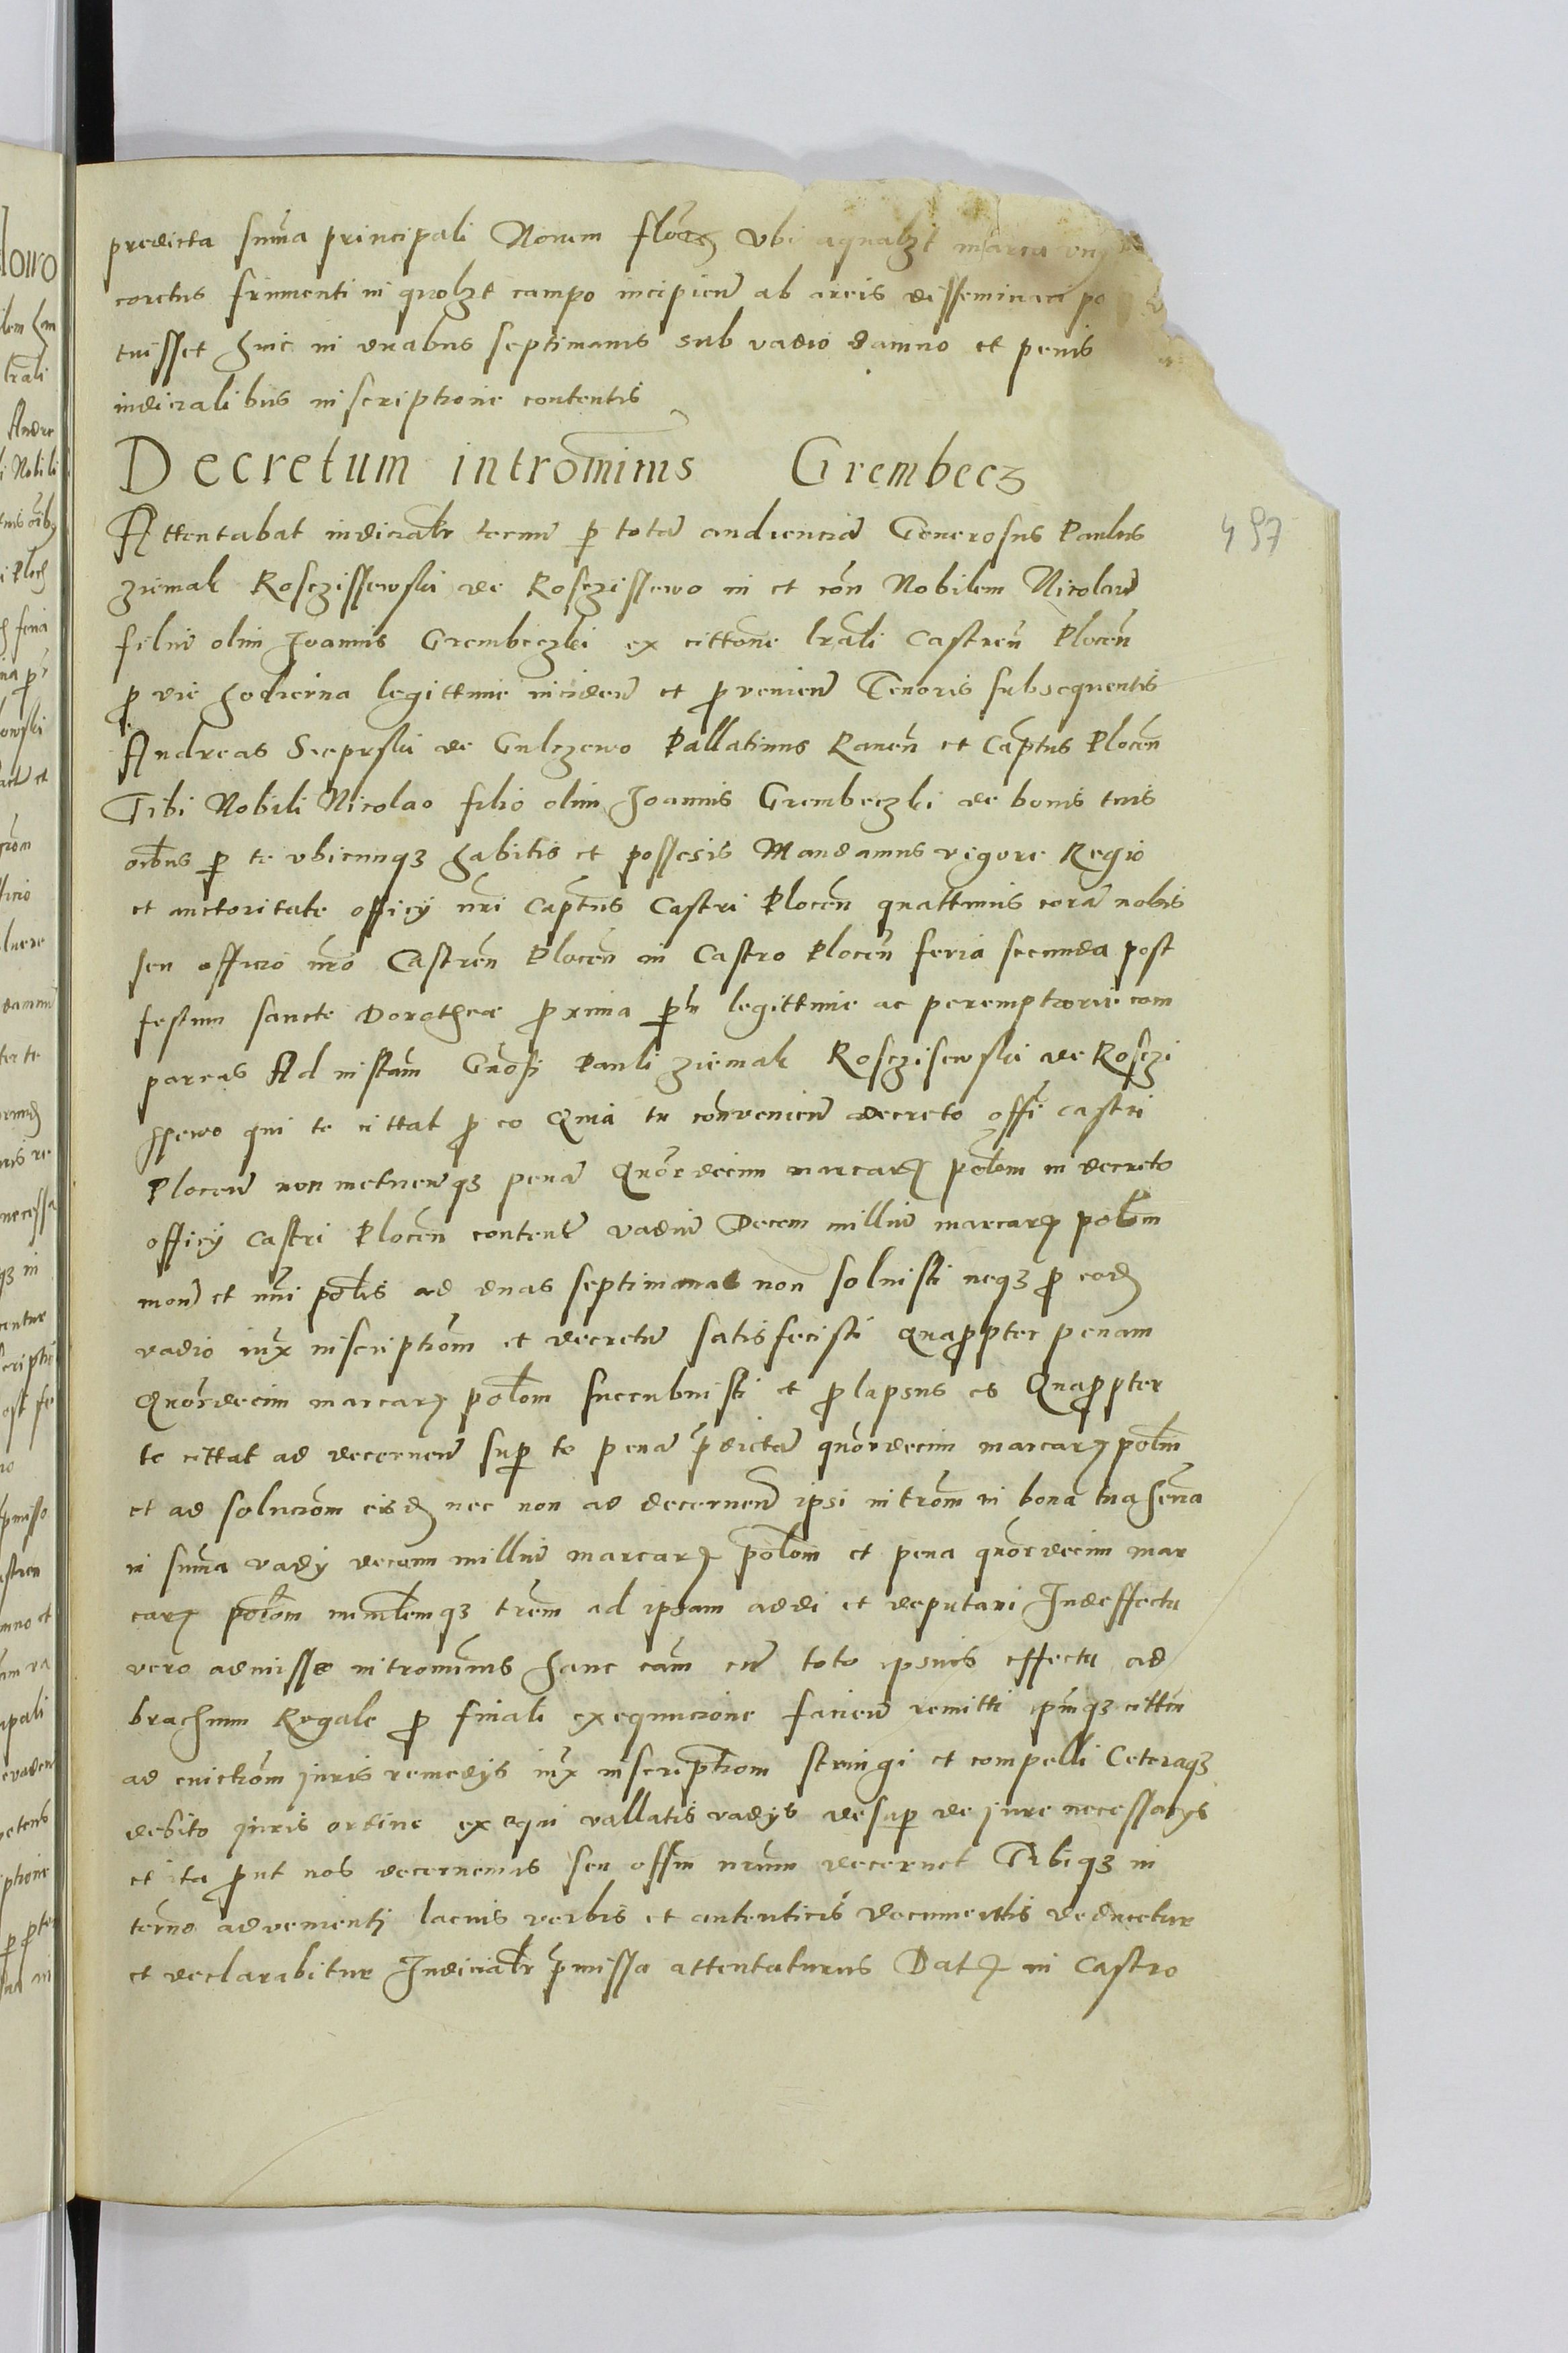 predicta suma principali Novem flor Ubi equalzt marca
coretus frumenti in quolzt campo incipien ab areis disseminari po
tuisset hinc in duabus septimanis sub vadio damno et penis
iudicialibus inscriptione contentis
Decretum intromiſnis Grembecz
Attentabat iudicialr termi p totam audienciam Generosus Paulus
ziemak Rosczissewski de Rosczissewo in et con Nobilem Nicolaum
filiu olim Joannis Grembeczki ex cittone lrali Castren Plocen
p die hodierna legittime inciden et provenien Tenoris subsequentis
Andreas Sieprski de Gulczewo Pallatinus Raven et Captus Plocen
Tibi Nobili Nicolao filio olim Joannis Grembeczki de bonis tuis
oibus p te ubicunqz habitis et possesis Mandamus vigore Regio
et auctoritate officij nri Captus Castri Plocen quattinus cora nobis
seu officio nro Castren Plocen in Castro Plocen feria secunda post
festum sancte Dorotheæ proxima legittime ac peremptorie com
pareas Ad instam Gnosi Pauli ziemak Rosczisewski de Rosczi
ssewo qui te cittat p eo Quia tu convenien decreto offi castri
Plocen non metuenqz pena Quordecim marcar polem in decreto
officij castri Plocen contentu vadiu Decem milliu marcar polem
mon et nri polis ad duas septimanas non soluisti neqz p eod
vadio iux inscriptiom et decretu satisfecisti quapropter penam
Quordecim marcar polem succubuisti et prolapsus es Quapropter
te cittat ad decernen sup te pena pdicta quordecim marcar polem
et ad soluciom eisd nec non ad decernen ipsi introm in bona tua
in suma vadij decem milliu marcar polem et pena quordecim mar
car polem trem ad ipsam addi et deputari Indeffectu
vero admisse intromiſnis hanc cam cu toto ipsius effectu ad
brachium Regale p finali exequucione facien remitti cittm
ad evictiom juris remedijs iux inscriptiom stringi et compelli Ceteraqz
debito juris ordine exequi vallatis vadijs desup de jure necessarijs
et ita prout nos decernemus seu offm nrum decernet Tibiqz in
termo advenienti lacius verbis et autenticis documentis deducetur
et declarabitur Judicialr pmissa attentaturus Dat in Castro
497